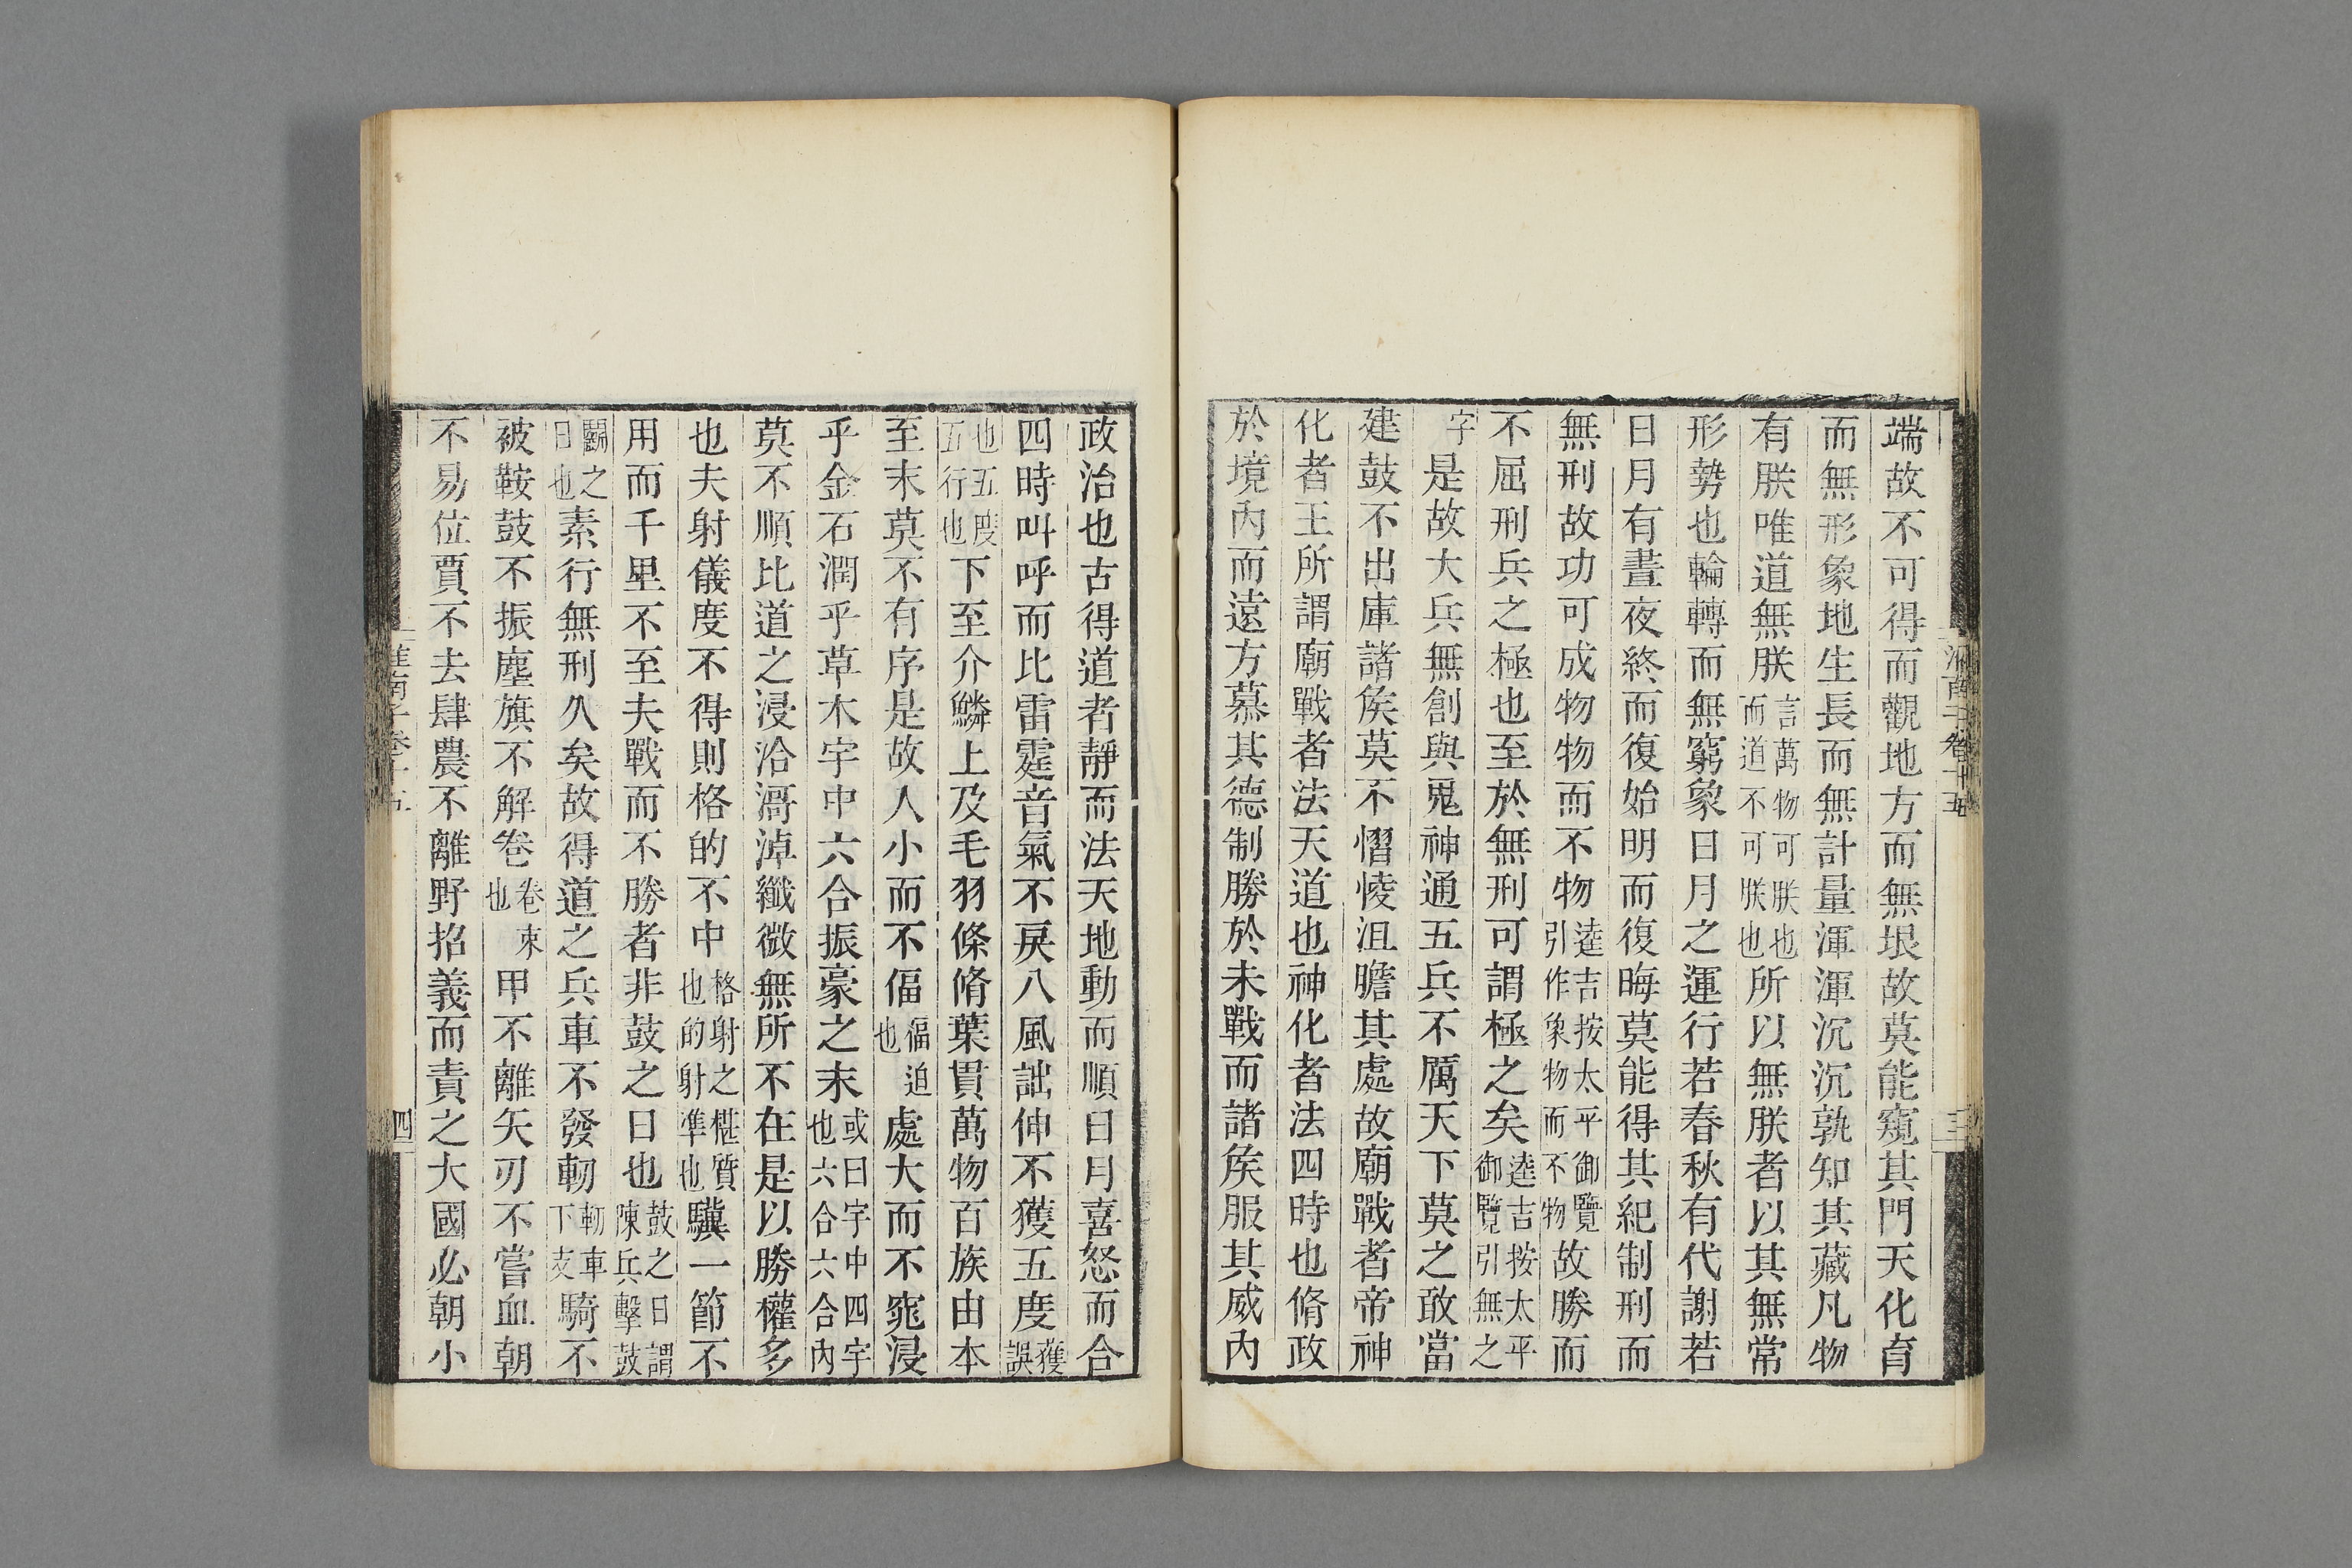 端故不可得而觀地方而無垠故莫能窺其門天化育
而無形象地生長而無計量渾渾沉沉孰知其藏凡物
有朕唯道無朕言萬物可朕也而道不可朕也所以無朕者以其無常
形勢也輪轉而無窮象日月之運行若春秋有代謝若
日月有晝夜終而復始明而復晦莫能得其紀制刑而
無刑故功可成物物而不物逵吉按太平御覽引作象物而不物故勝而
不屈刑兵之極也至於無刑可謂極之矣逵吉按太平御覽引無之
字是故大兵無創與鬼神通五兵不厲天下莫之敢當
建鼓不出庫諸矦莫不慴悽沮膽其處故廟戰者帝神
化者王所謂廟戰者法天道也神化者法四時也脩政
於境內而遠方慕其德制勝於未戰而諸矦服其威內
淮南子卷十五
三
政治也古得道者靜而法天地動而順日月喜怒而合
四時叫呼而比雷霆音氣不戾八風詘伸不獲五度獲誤
也五度五行也下至介鱗上及毛羽條脩葉貫萬物百族由本
至末莫不有序是故人小而不偪偪迫也處大而不窕浸
乎金石潤乎草木宇中六合振豪之末或曰宇中四宇也六合六合內
莫不順比道之浸洽滒淖纖微無所不在是以勝權多
也夫射儀度不得則格的不中格射之椹質也的射準也驥一節不
用而千里不至夫戰而不勝者非鼓之日也鼓之日謂陳兵擊鼓
鬭之日也素行無刑久矣故得道之兵車不發軔軔車下支騎不
被鞍鼓不振塵旗不解卷卷束也甲不離矢刃不嘗血朝
不易位賈不去肆農不離野招義而責之大國必朝小
淮南子卷十五
四